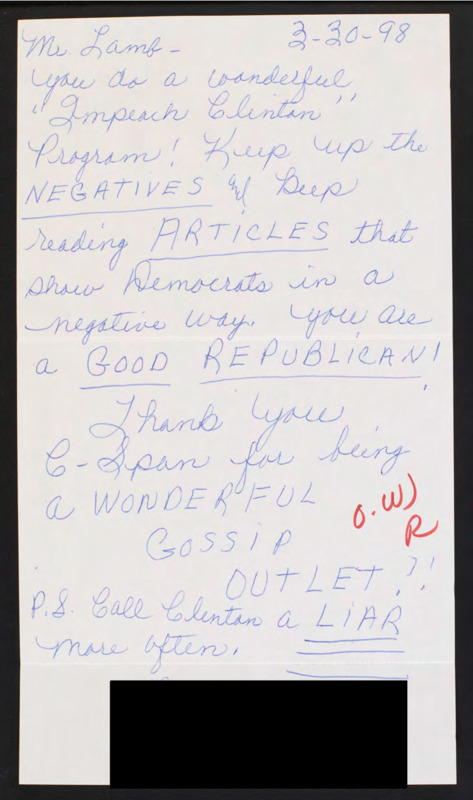 Mr. Lamb- 3-30-98
You do a wonderful
"Impeach Clinton"
Program! Keep up the
NEGATIVES and keep
reading ARTICLES that
show Democrats in a
negative way. You are
a GOOD REPUBLICAN!
Thank you
C-Span for being
a WONDERFUL
GOSSIP
OUTLET?!
O.W)
R
P.S. Call Clinton a LIAR
more often.